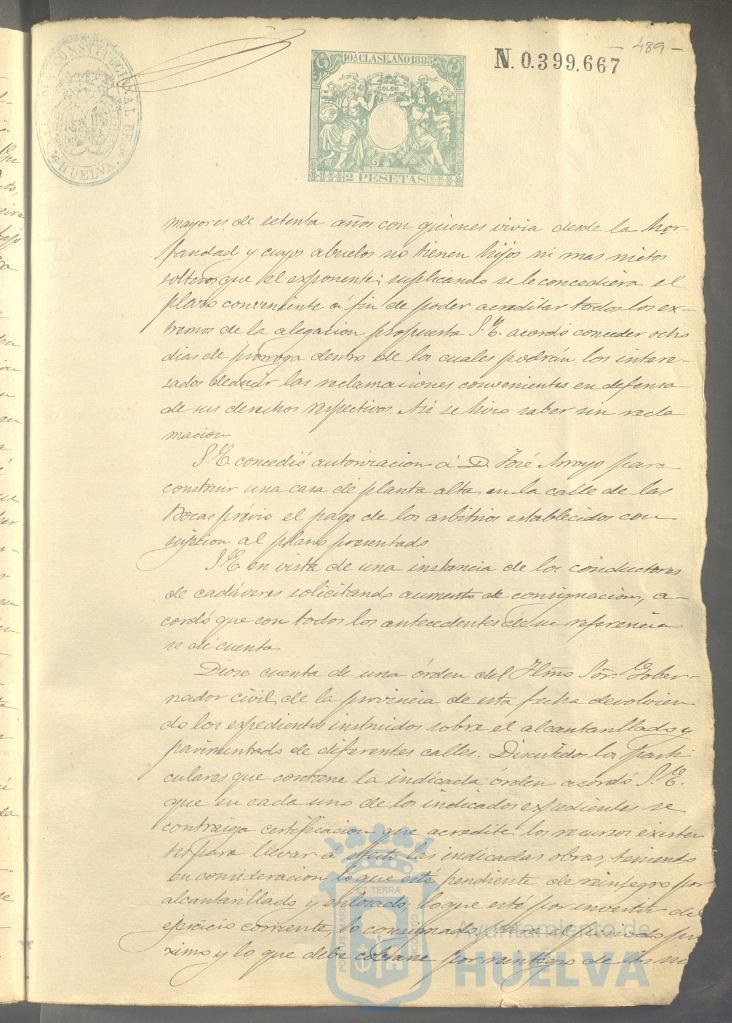 - 489 -
N. 0.399.667
10.ª CLASE. AÑO 1885
2 PESETAS
HUELVA
mayores de setenta años con quienes vivia desde la hor-
fandad y cuyos abuelos no tienen hijos ni mas nietos
solteros que el exponente; suplicando se le concediera el
plazo conveniente á fin de poder acreditar todos los ex-
tremos de la alegacion propuesta S.E. acordó conceder ocho
dias de próroga dentro de los cuales podrán los intere-
sados deducir las reclamaciones convenientes en defensa
de sus derechos respectivos. Asi se hizo saber sin recla
macion
S.E. concedió autorizacion á D. José Arroyo para
construir una casa de planta alta en la calle de las
Bocas prévio el pago de los arbitrios establecidos con
sujecion al plano presentado
S.E. en vista de una instancia de los conductores
de cadáveres solicitando aumento de consignacion, a-
cordó que con todos los antecedentes de su referencia
se dé cuenta
Diose cuenta de una órden del Iltmo Sor. Gober-
nador civil de la provincia de esta fecha devolvien
do los expedientes instruidos sobre el alcantarillado y
pavimentado de diferentes calles. Discutidos los parti
culares que contiene la indicada órden acordó S.E.
que en cada uno de los indicados expedientes se
contraiga certificacion que acredite los recursos existen
tes para llevar á efecto las indicadas obras, teniendo
en consideracion lo que está pendiente de reintegro por
alcantarillado y enlosado, lo que esta por invertir del
ejercicio corriente, lo consignado en el presupuesto pró
ximo y lo que debe cobrarse por reintegro de las
Ayuntamiento de
HUELVA